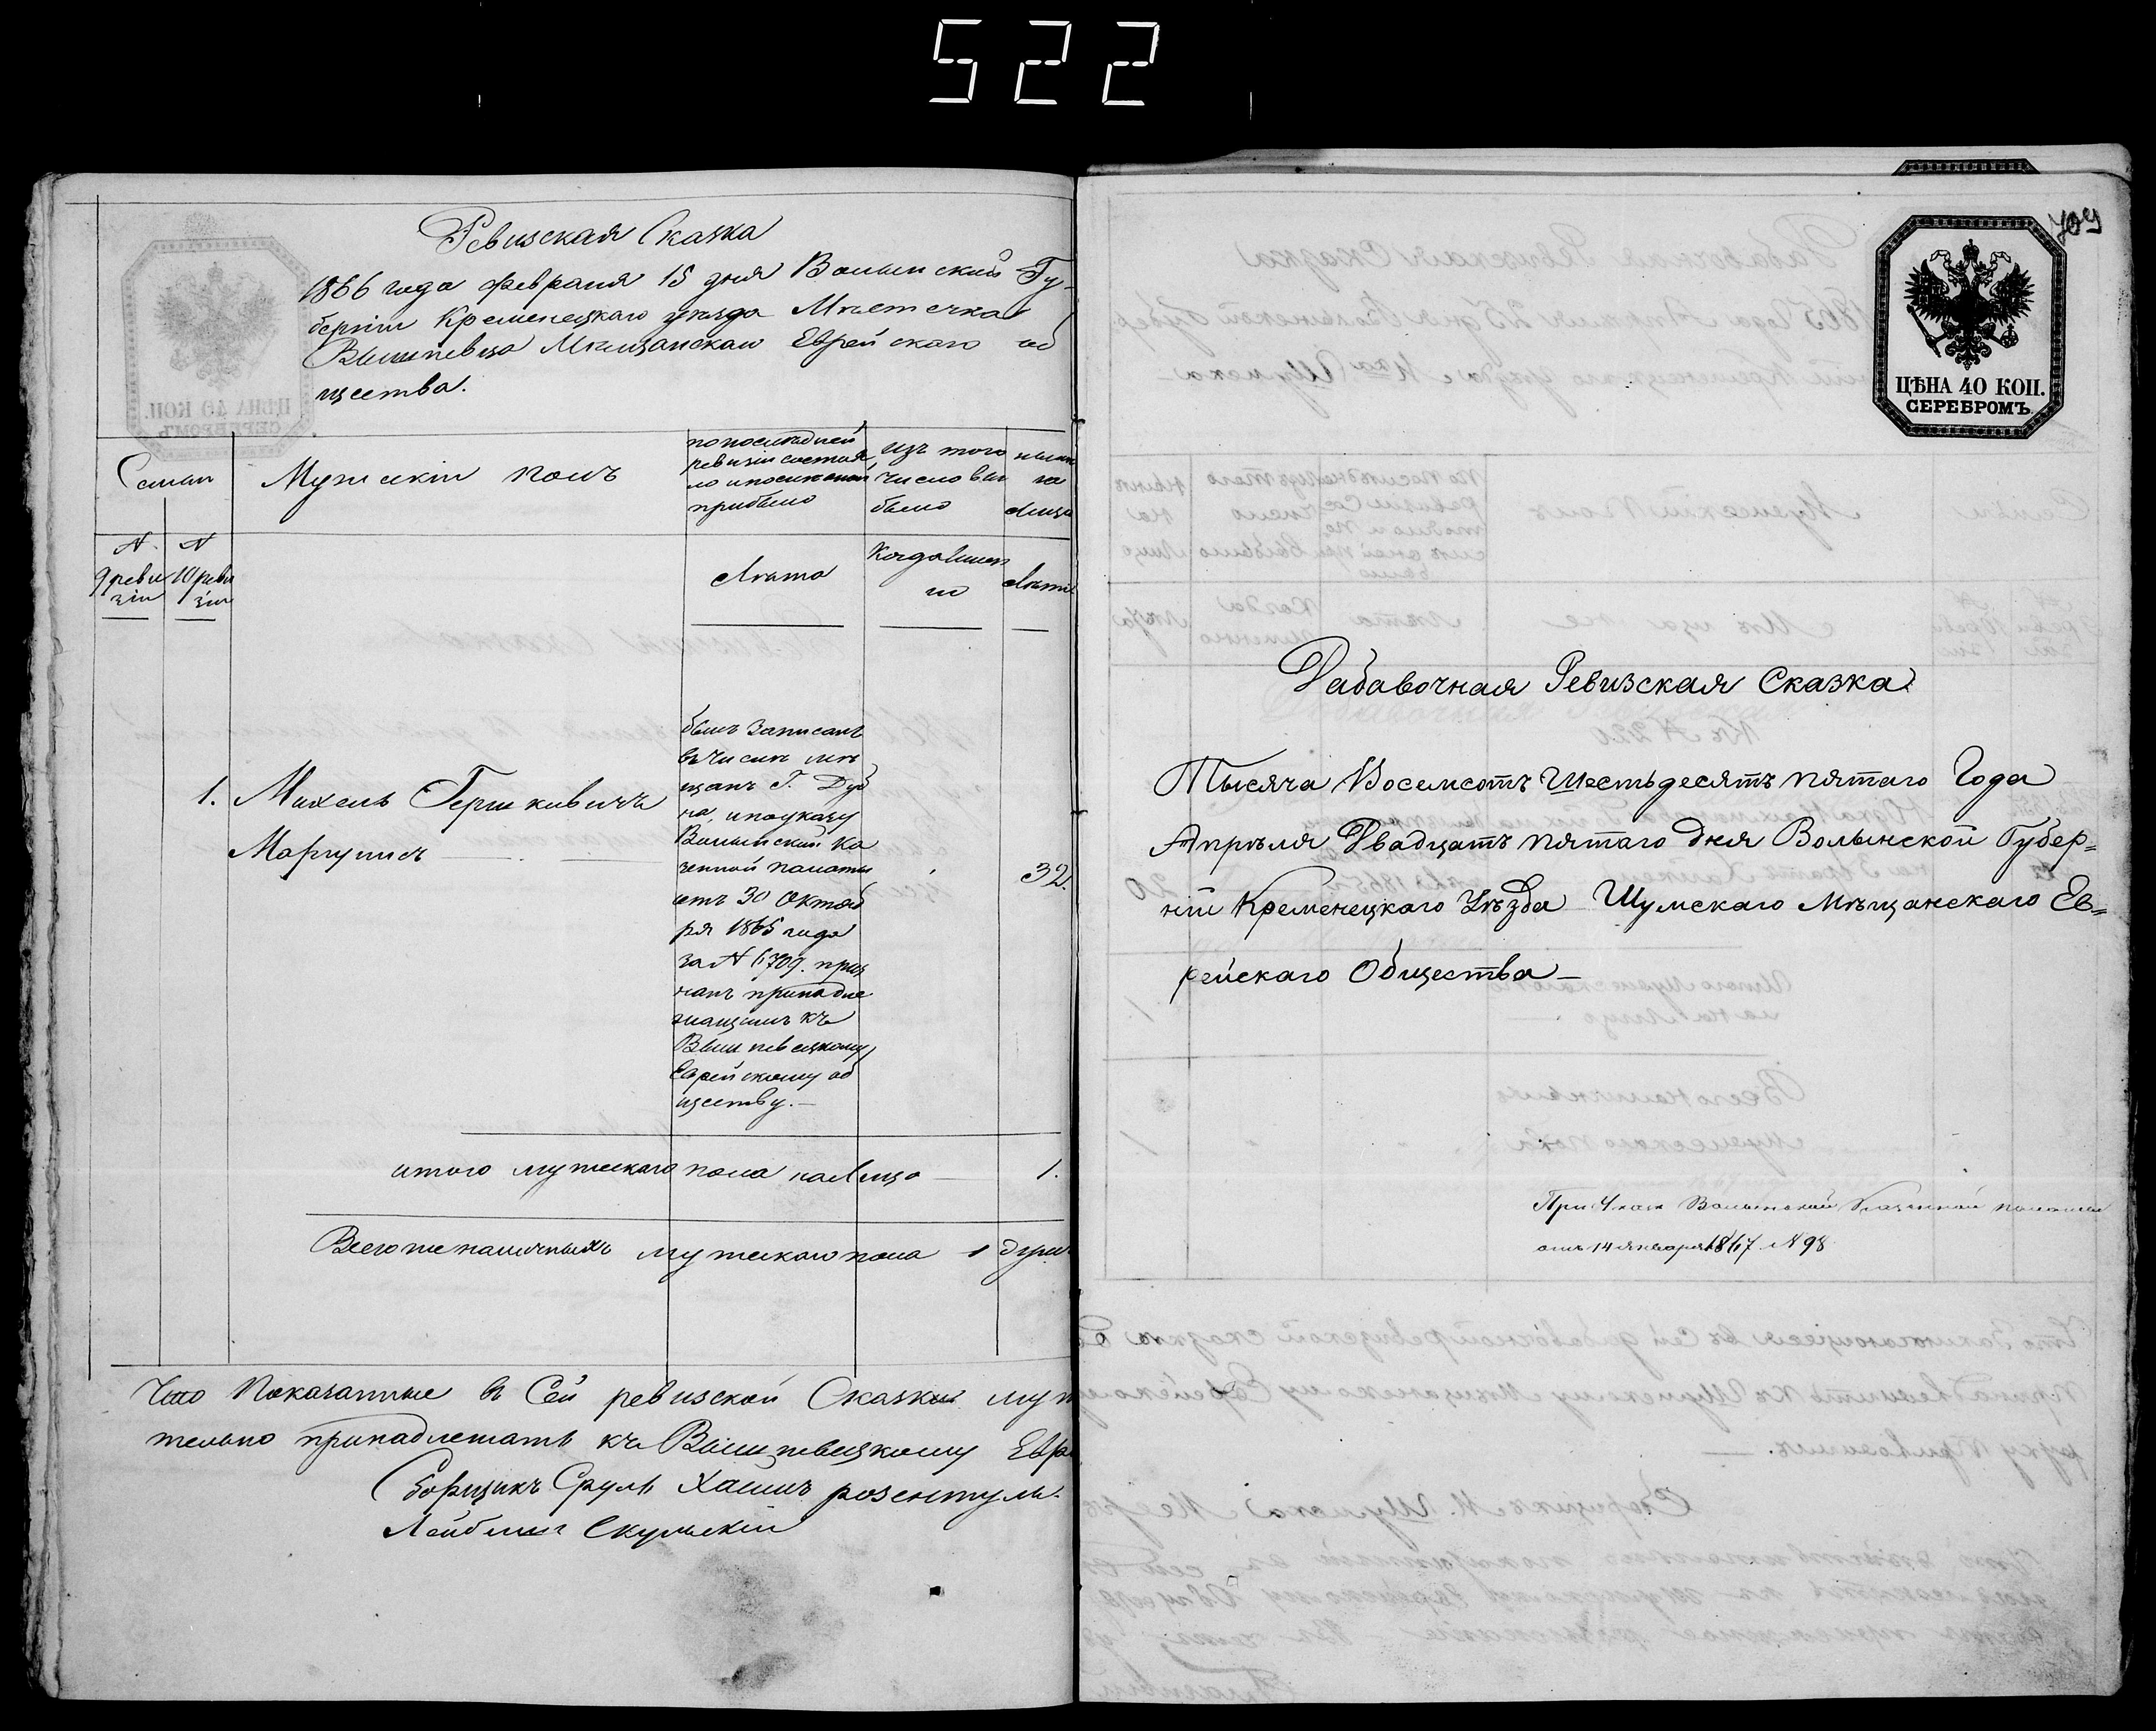 522
Ревизская Сказка
1866 года февраля 15 дня Волынской Гу-
берніи Кременецкаго уѣзда Мѣстечка
Вышневца Мѣщанскаго Еврейскаго об
щества.
Семьи
Мужескій полъ
по последней
ревизіи состоя
ло и после оной
прибыло
изъ того
числа вы
было
нынѣ
на
лицо
№
9 реви
зіи
№
10 реви
зіи
Лѣта
Когда Имен
но
Лѣта
1. Михель Гершковичъ
Маргулисъ
былъ записанъ
въ числѣ мѣ
щанъ Г. Дуб
на, и по указу
Волынской Ка
зенной палаты
отъ 30 Октяб
ря 1865 года
за № 6709. приз
нанъ принадле
жащимъ къ
Вишневецкому
Еврейскому об
ществу.—
32.
итого мужескаго пола на Лицо 1.
Всего же наличныхъ мужескаго пола 1 душа
Что Показанные въ Сей ревизской Сказки муж
тельно принадлежатъ къ Вишневецкому Евре
Сборщикъ Сруль Хаимъ розентуль.
Скульскій
709
ЦѢНА 40 КОП.
СЕРЕБРОМЪ.
Дабавочная Ревизская Сказка
Тысяча Восемсотъ Шестьдесятъ пятаго Года
Апрѣля Двадцатъ пятаго дня Волынской Губер=
ніи Кременецкаго Уѣзда Шумскаго Мѣщанскаго Ев=
рейскаго Общества—
При Указѣ Волынской Казенной палаты
отъ 14 января 1867 № 98